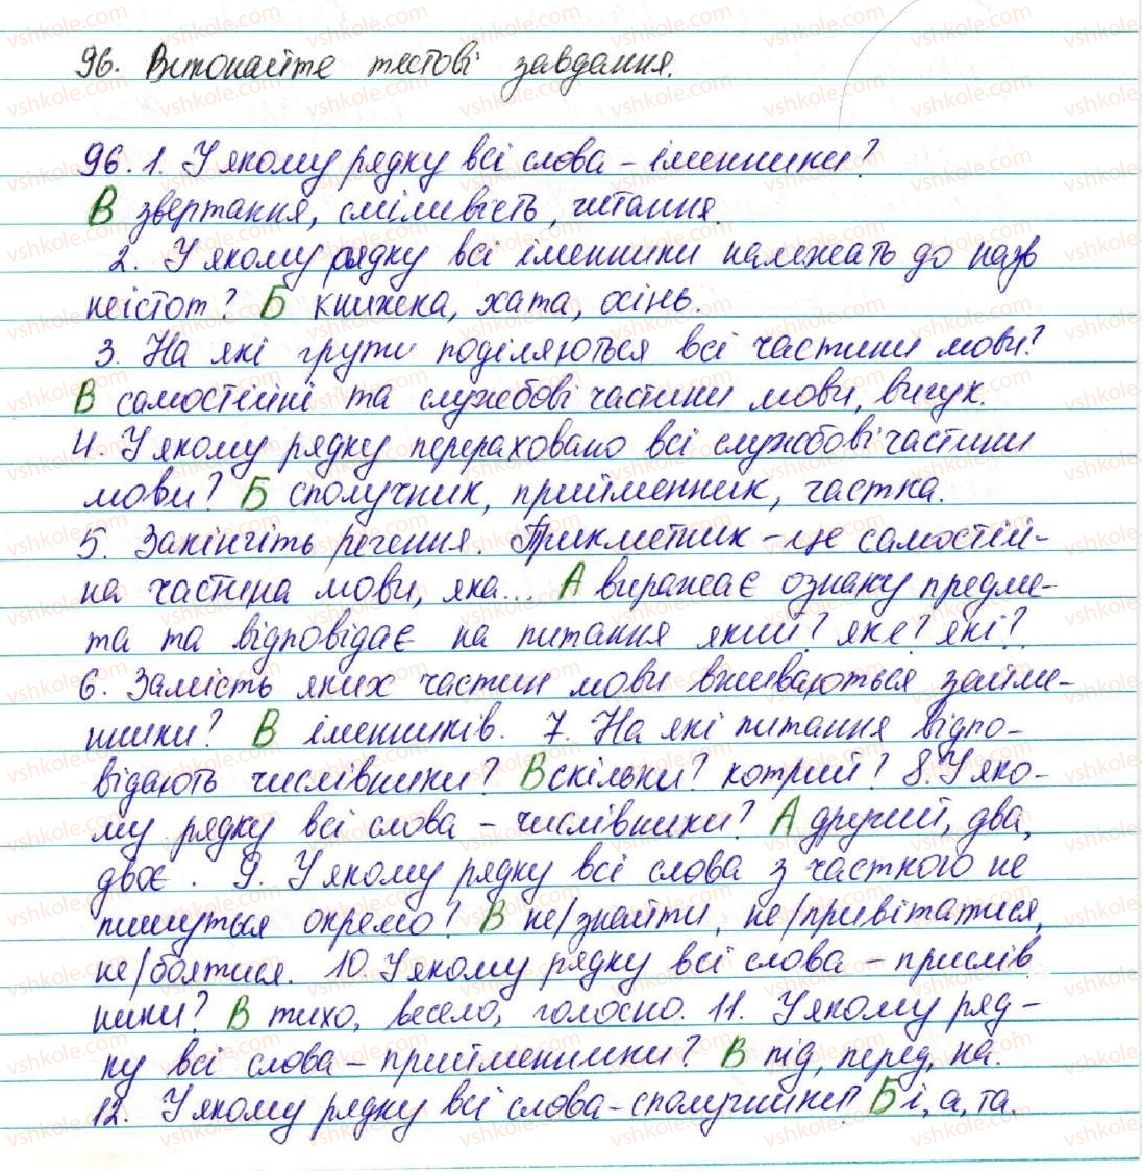 96. Виконайте тестові завдання.
96. 1. У якому рядку всі слова – іменники?
В звертання, сміливість, читання.
2. У якому рядку всі іменники належать до назв
неістот? Б книжка, хата, осінь.
3. На які групи поділяються всі частини мови?
В самостійні та службові частини мови, вигук.
4. У якому рядку перераховано всі службові частини
мови? Б сполучник, прийменник, частка.
5. Закінчіть речення. Прикметник – це самостій-
на частина мови, яка... А виражає ознаку предме-
та та відповідає на питання який? яке? які?
6. Замість яких частин мови вживаються займе-
нники? В іменників. 7. На які питання відпо-
відають числівники? В скільки? котрий? 8. У яко-
му рядку всі слова – числівники? А другий, два,
двоє. 9. У якому рядку всі слова з часткою не
пишуться окремо? В не/знайти, не/привітатися,
не/боятися. 10. У якому рядку всі слова – прислів
ники? В тихо, весело, голосно. 11. У якому ряд-
ку всі слова – прийменники? В під, перед, на.
12. У якому рядку всі слова – сполучники? Б і, а, та.